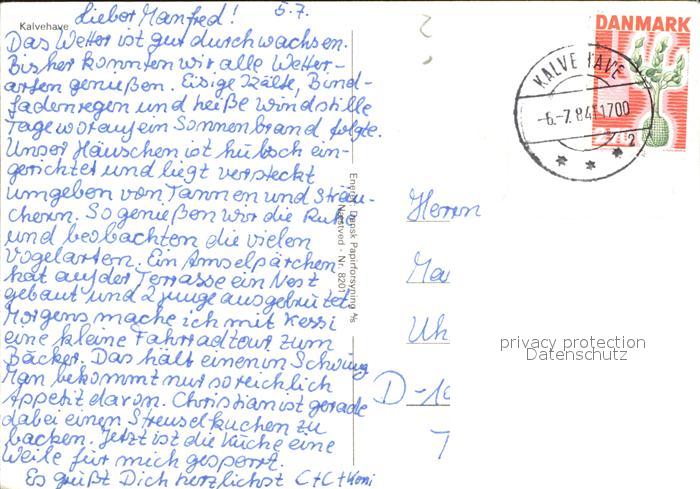 Kalvehave
Lieber Manfred! 5.7.
Das Wetter ist gut durchwachsen.
Bisher konnten wir alle Wetter-
arten genießen. Eisige Kälte, Bind-
fadenregen und heiße windstille
Tage worauf ein Sonnenbrand folgte.
Unser Häuschen ist hübsch ein-
gerichtet und liegt versteckt
umgeben von Tannen und Sträu-
chern. So genießen wir die Ruhe
und beobachten die vielen
Vogelarten. Ein Amselpärchen
hat auf der Terrasse ein Nest
gebaut und 2 junge ausgebrütet.
Morgens mache ich mit Kersi
eine kleine Fahrradtour zum
Bäcker. Das hält einen in Schwung
Man bekommt nur so reichlich
Appetit davon. Christian ist gerade
dabei einen Streuselkuchen zu
backen. Jetzt ist die Küche eine
Weile für mich gesperrt.
Es grüßt Dich herzlichst C+C+
Eneret: Dansk Papirforsyning A/s
Næstved - Nr. 8201
DANMARK
KALVEHAVE
-6.-7.84 17.00
2
Herrn
Ma
Uh
D-10
privacy protection
Datenschutz